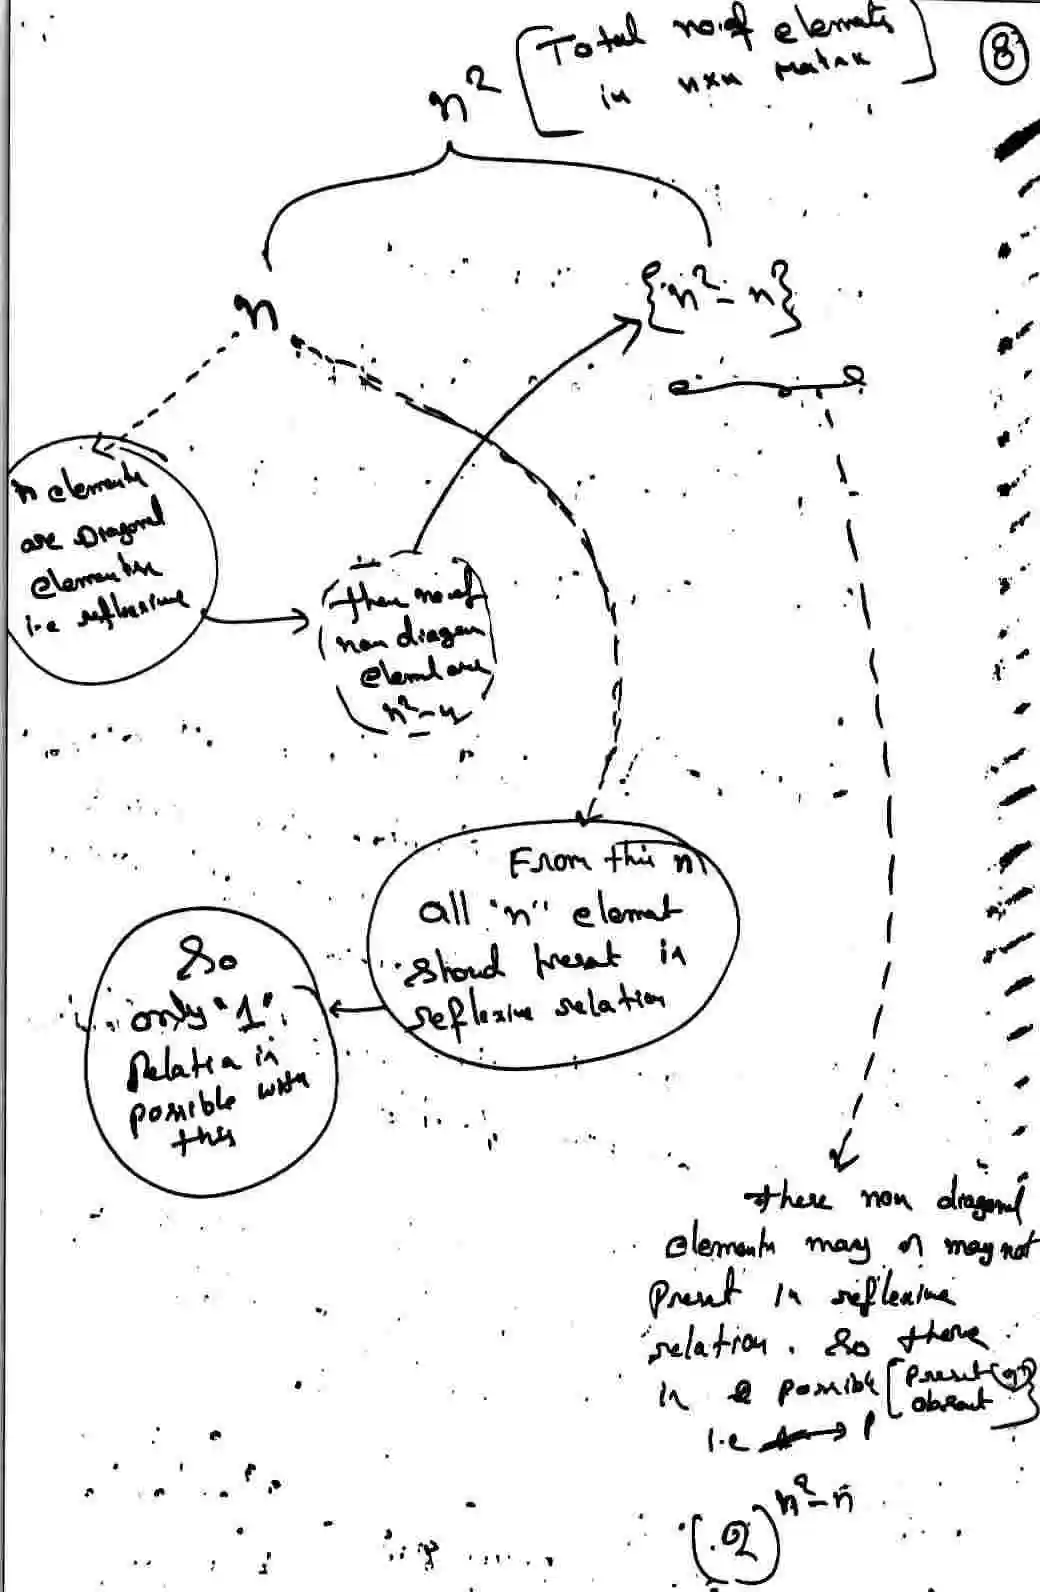 n² [Total no.of elements
in n×n matrix]
8
n
{n² - n}
n elements
are Diagonal
elements
i.e reflexive
then no.of
non diagon
elemt are
n² - n
From this n
all "n" elemat
shoud presat in
reflexive relation
So
only "1"
Relatia is
possible with
this
there non diagonal
elements may or may not
Preset in reflexive
relation. So there
is 2 possible [Preset (or)
absent}
i.e → P
(2)^n²-n